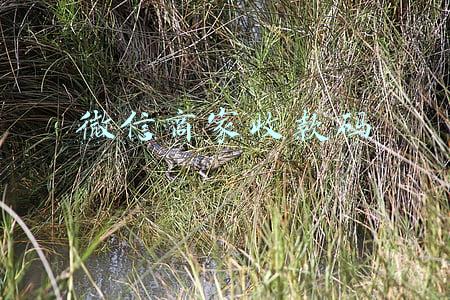 微信商家收款码